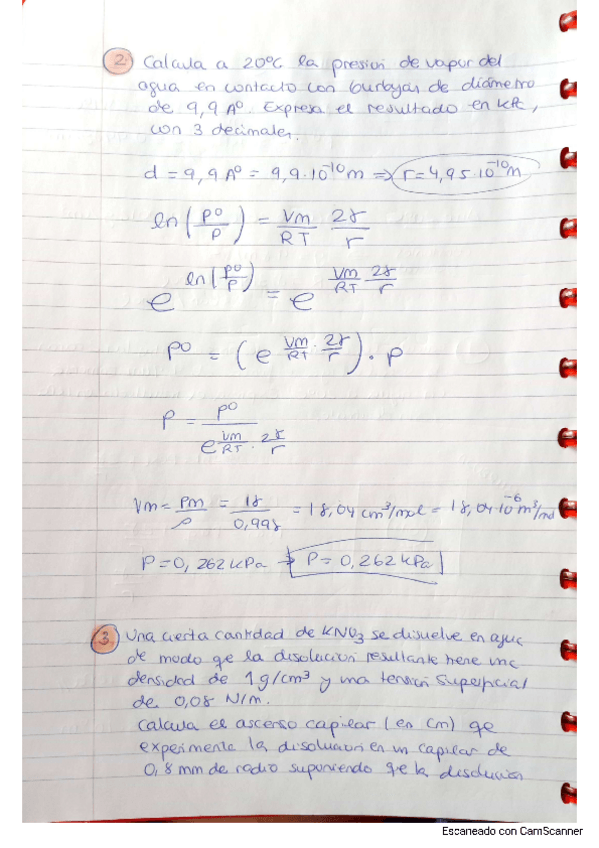 2. Calcula a 20ºC la presion de vapor del
agua en contacto con burbujas de diámetro
de 9,9 Aº. Expresa el resultado en kPa,
con 3 decimales.
d = 9,9 Aº = 9,9·10^-10 m => r = 4,95·10^-10 m
ln(Pº/P) = Vm/RT 2γ/r
e^ln(Pº/P) = e^(Vm/RT 2γ/r)
Pº = (e^(Vm/RT · 2γ/r)) · P
P = Pº/e^(Vm/RT · 2γ/r)
Vm = Pm/ρ = 18/0,998 = 18,04 cm³/mol = 18,04·10^-6 m³/mol
P = 0,262 kPa → P = 0,262 kPa
3. Una cierta cantidad de KNO3 se disuelve en agua
de modo qe la disolucion resultante tiene una
densidad de 1 g/cm³ y una tension superficial
de 0,08 N/m.
Calcula el ascenso capilar (en cm) qe
experimenta la disolucion en un capilar de
0,8 mm de radio suponiendo qe la disolucion
Escaneado con CamScanner